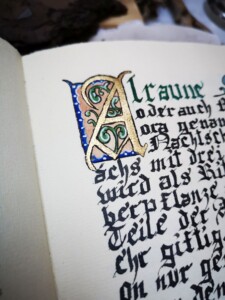 Alraune
oder auch
genan
Nachtsch
achs mit drei
wird als Ri
berpflanze
Teile der
ehr giftig
on nur ge